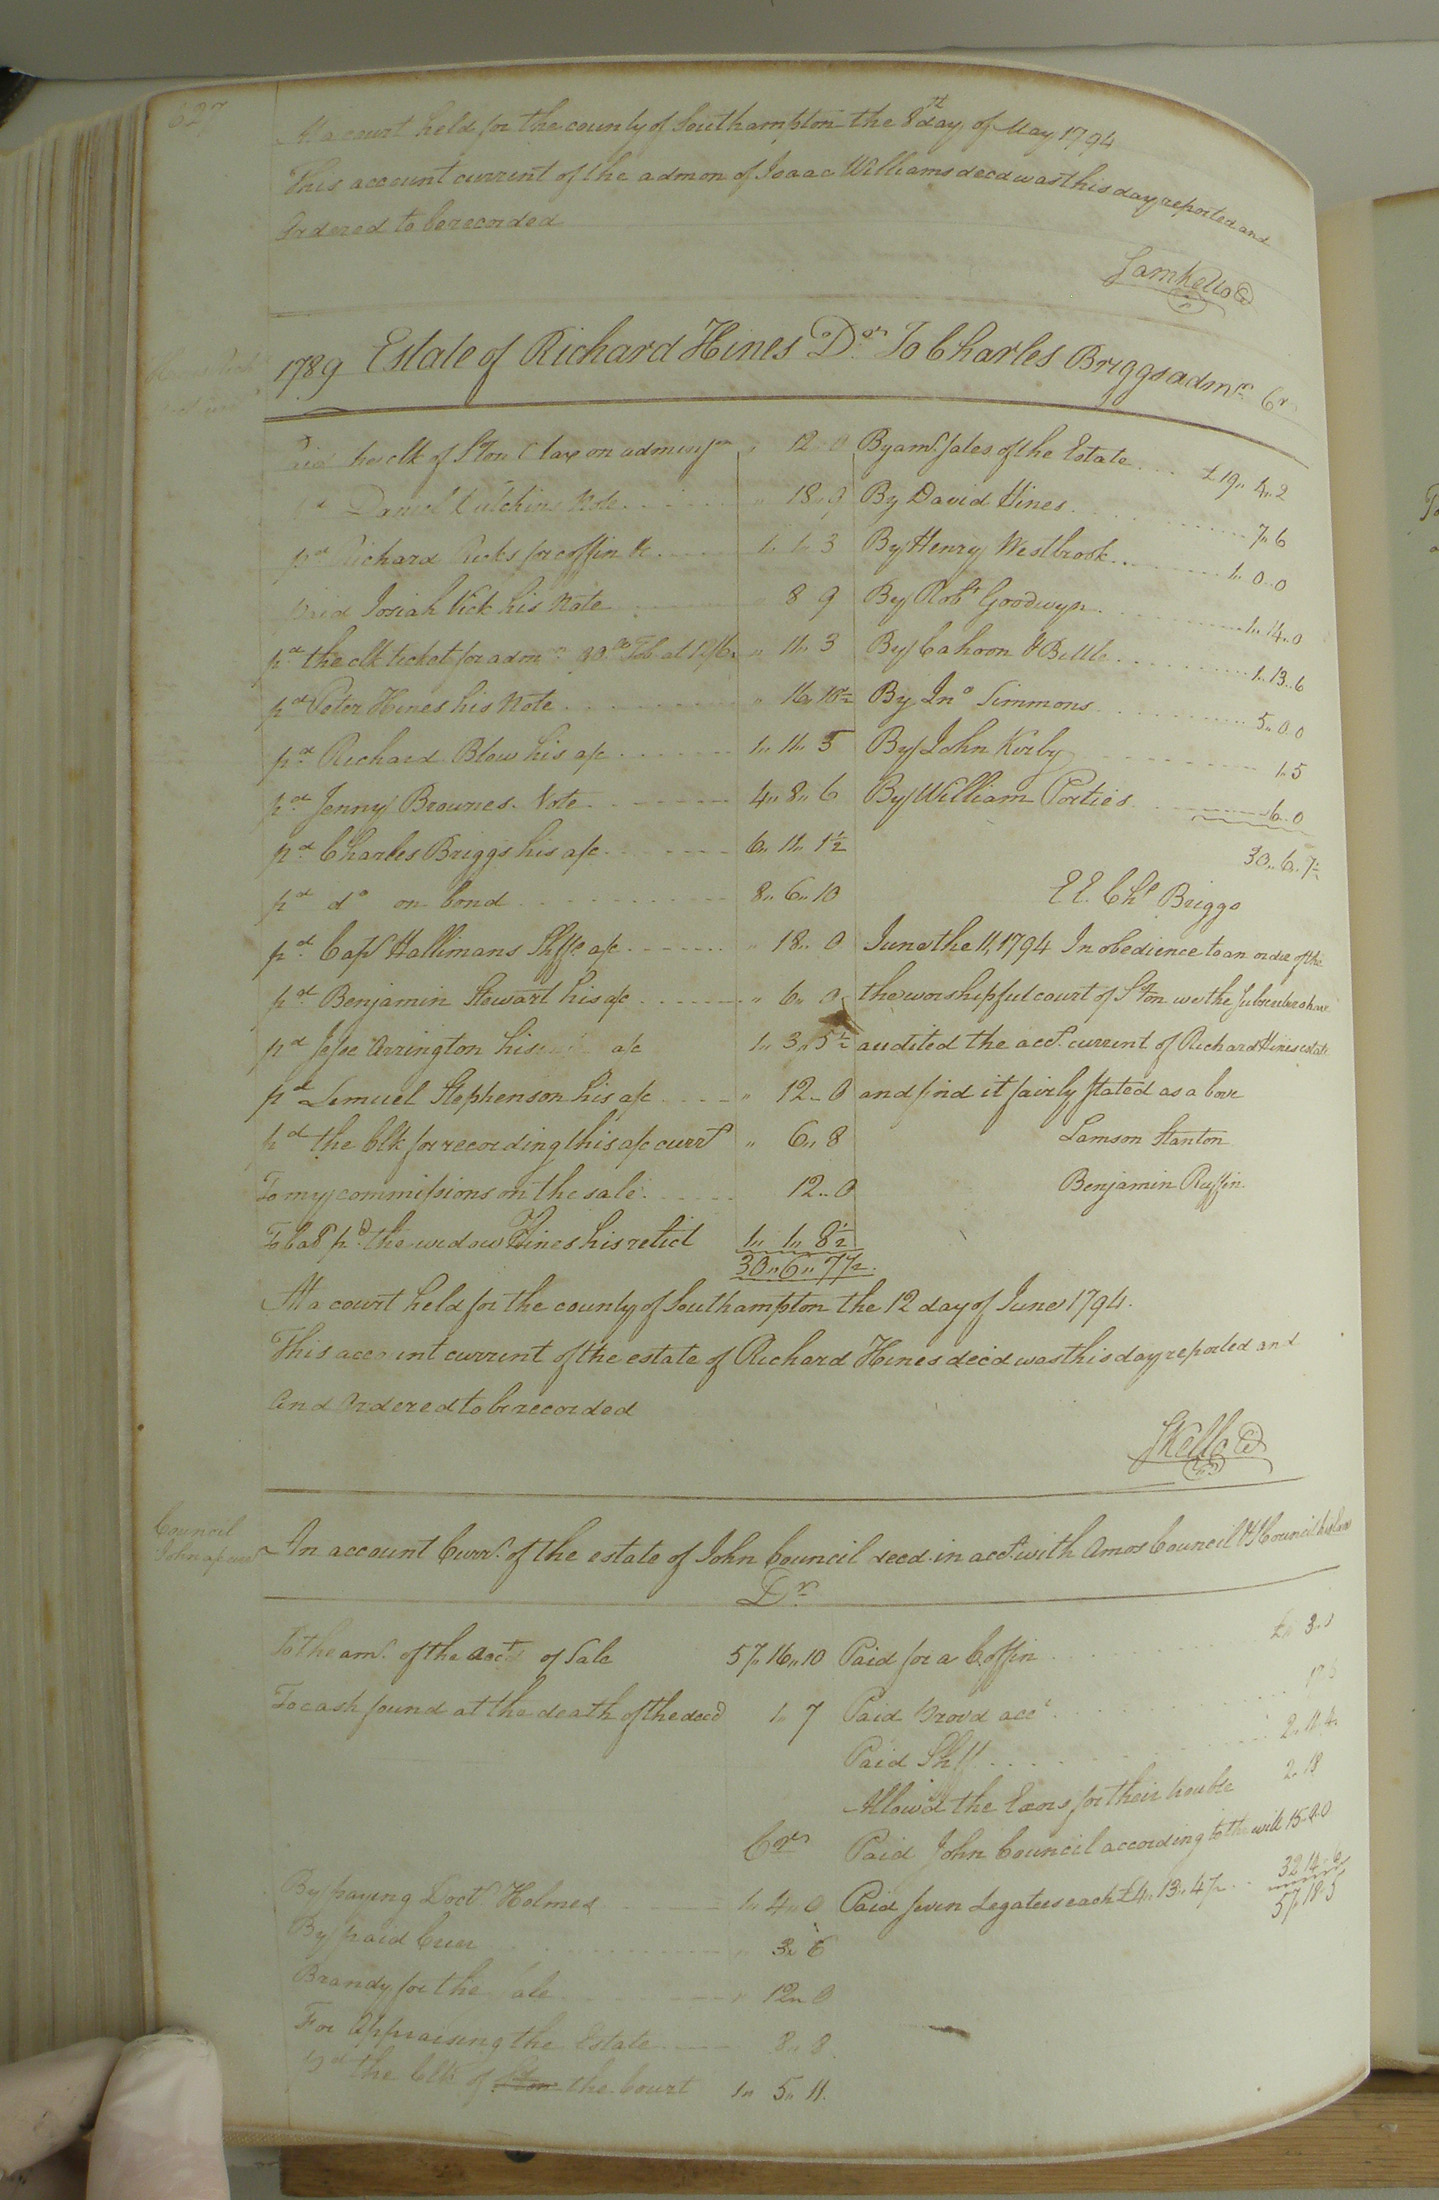 627
At a court held for the county of Southampton the 8th day of May 1794
This account current of the admon of Isaac Williams decd was this day reported and
Ordered to be recorded
Sam Kello
1789 Estate of Richard Hines Dr. To Charles Briggs admr. Cr
the clk of S'ton C tax on adminson " 12 " 0
Daniel note " 18 " 9
pd Richard Ricks for coffin &c 1 " 1 " 3
Paid Josiah Vick his Note " 8 " 9
pd the clk ticket for admn. " 11 " 3
pd Peter Hines his Note " 16 " 10½
pd Richard Blow his a/c 1 " 11 " 5
pd Jenny Brownes Note 4 " 8 " 6
pd Charles Briggs his a/c 6 " 11 " 1½
pd do on bond 8 " 6 " 10
pd Capt Hallimans Shffs a/c " 18 " 0
pd Benjamin Stewart his a/c " 6 " 0
pd Jesse Arrington his a/c 1 " 3 " 5½
pd Lemuel Stephenson his a/c " 12 " 0
pd the Clk for recording this a/c currt " 6 " 8
To my commissions on the sale 12 " 0
To bale pd the widow Hines his relict 1 " 1 " 8½
30 " 6 " 7½
By amt. sales of the Estate £19 " 4 " 2
By David Hines 7 " 6
By Henry Westbrook 1 " 0 " 0
By Robt Goodwyn 1 " 14 " 0
By Cahoon & Bittle 1 " 13 " 6
By Jno Simmons 5 " 0 " 0
By John Kirby 1 " 5
By William Porties 6 " 0
30 " 6 " 7½
E E. Chs Briggs
June the 11, 1794 In obedience to an order of the
the worshipful court of S'ton we the subscribers have
audited the acct. current of Richard Hines estate
and find it fairly stated as above
Lamson Stanton
Benjamin Ruffin
At a court held for the county of Southampton the 12 day of June 1794.
This account current of the estate of Richard Hines decd was this day reported and
and Ordered to be recorded
S Kello
Council
John a/c curr
An account Curr. of the estate of John Council decd. in acct. with Amos Council & Council his
Dr
To the amt. of the acct of Sale 57 " 16 " 10
To cash found at the death of the decd 1 " 7
Crs
By paying Doctr Holmes 1 " 4 " 0
By paid 3 " 6
Brandy for the sale 12 " 0
For Appraising the Estate 8 " 8
pd the Clk of the Court 1 " 5 " 11.
Paid for a Coffin 3 " 0
Paid provd acct
Paid Shff 2 " 11 " 4
Allow'd the Exors for their trouble 2 " 18
Paid John Council according to the will 15 " 0 " 0
Paid seven Legatees each £4 " 13 " 4½ 32 14
57 " 18 " 5